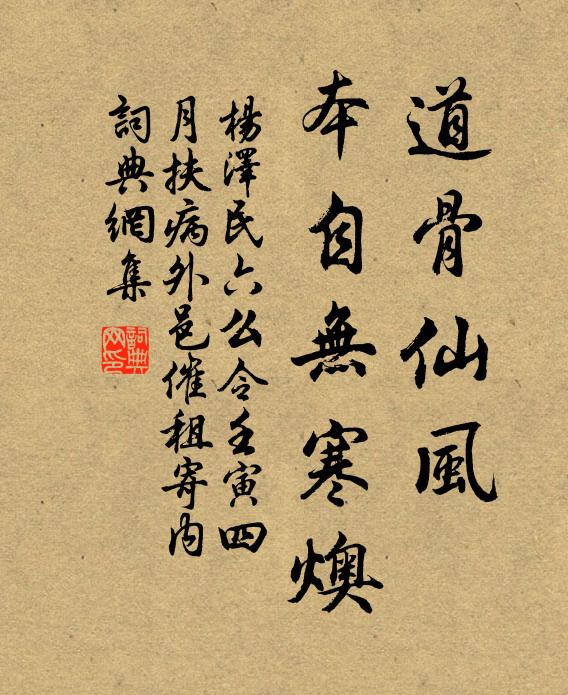 道骨仙風
本自無寒燠
楊澤民六么令壬寅四
月扶病外邑催租寄內
詞典網集
詞典
网印